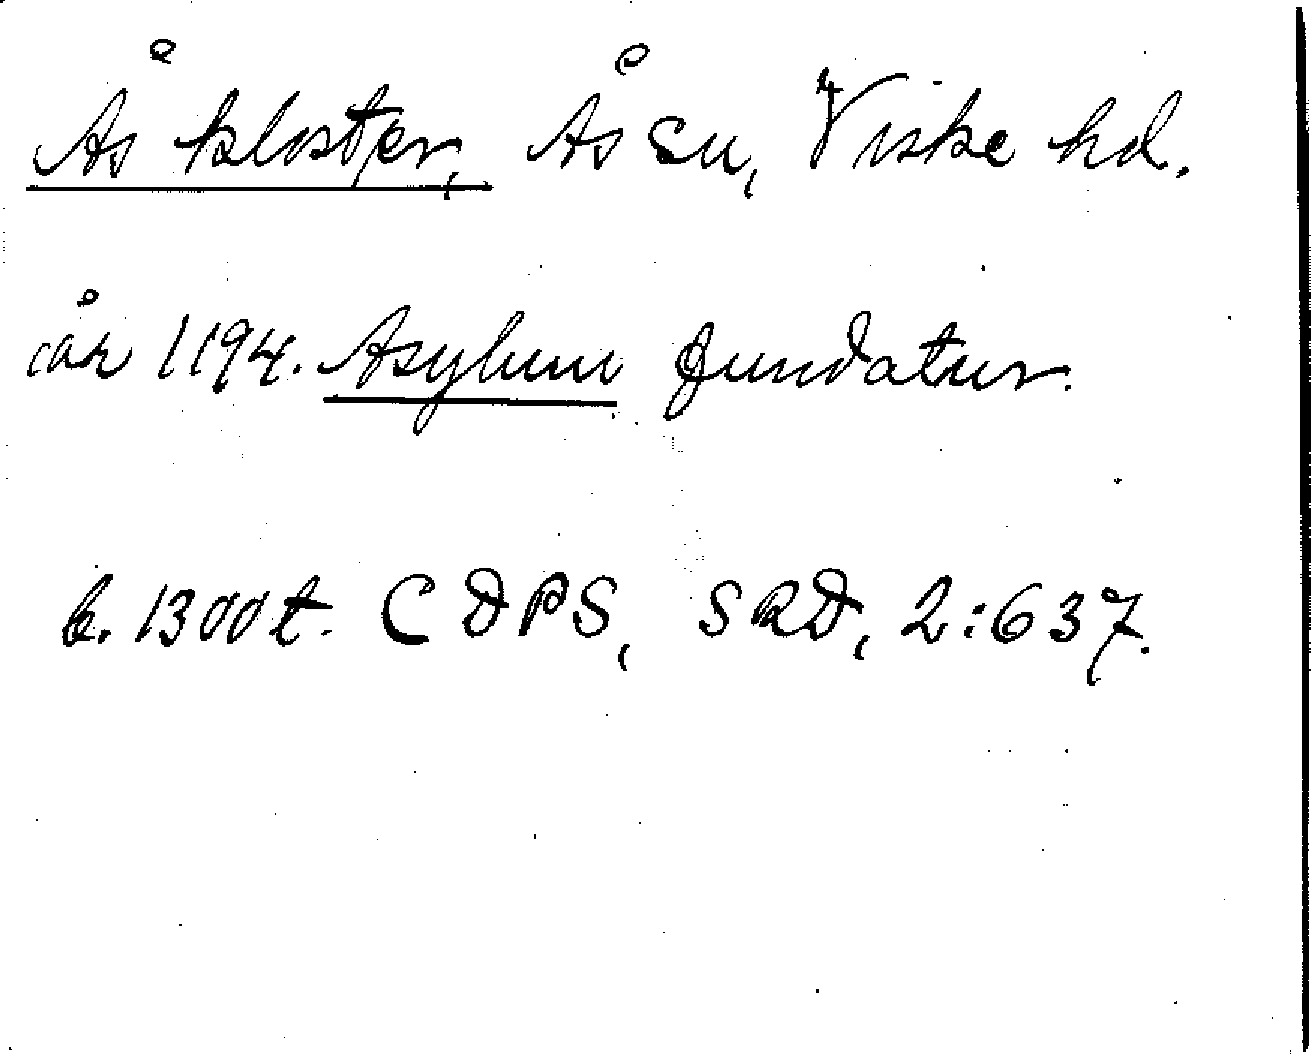 Ås kloster, Ås sn, Viske hd.
år 1194. Asylum fundatur.
b. 1300 t. CDPS, SRD, 2:637.